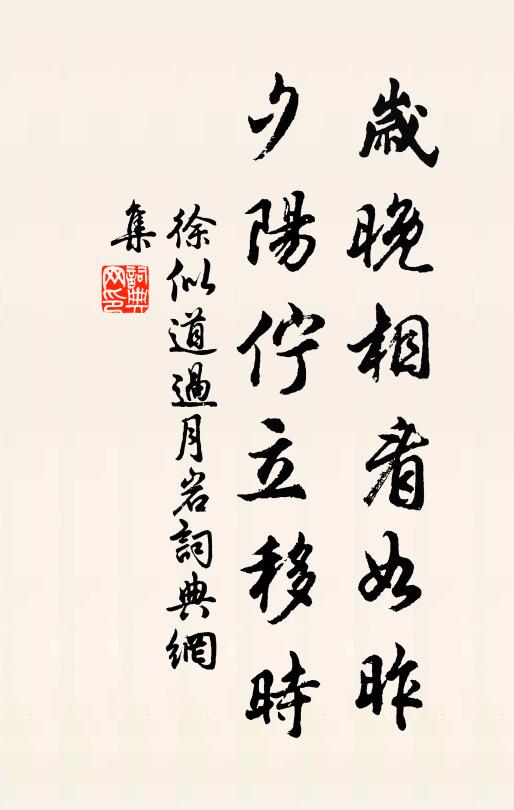 歲晚相看如昨
夕陽佇立移時
徐似道過月岩詞典網
集
詞典
网印